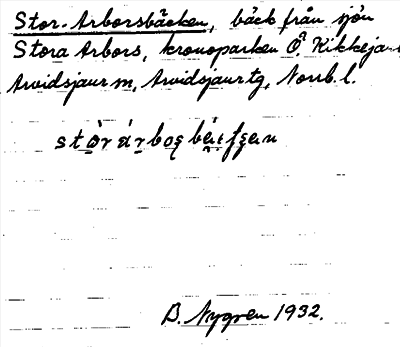 Stor-Arborsbäcken, bäck från sjön
Stora Arbors, kronoparken Ö. Kikkeja
Arvidsjaur m, Arvidsjaur tg, Norrb. l.
B. Nygren 1932.